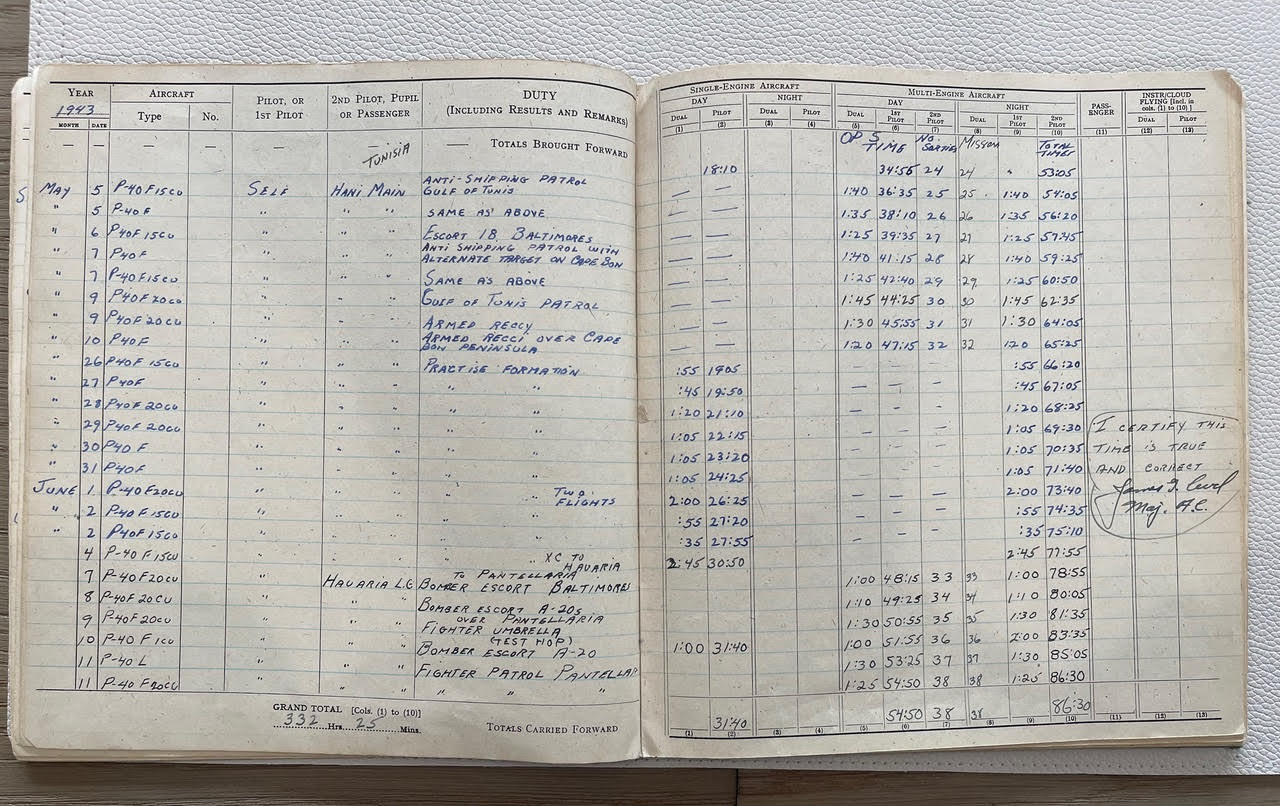 YEAR AIRCRAFT PILOT, OR 1ST PILOT 2ND PILOT, PUPIL OR PASSENGER DUTY (INCLUDING RESULTS AND REMARKS)
1943
MONTH DATE Type No.
SINGLE-ENGINE AIRCRAFT MULTI-ENGINE AIRCRAFT PASSENGER INSTR/CLOUD FLYING [Incl. in cols. (1) to (10)]
DAY NIGHT DAY NIGHT
DUAL PILOT DUAL PILOT DUAL 1ST PILOT 2ND PILOT DUAL 1ST PILOT 2ND PILOT DUAL PILOT
(1) (2) (3) (4) (5) (6) (7) (8) (9) (10) (11) (12) (13)
OPS TIME NO SORTIES MISSION TOTAL TIMES
— — — — TUNISIA — TOTALS BROUGHT FORWARD 18:10 34:55 24 24 " 53:05
MAY 5 P-40 F15CU SELF HANI MAIN ANTI-SHIPPING PATROL GULF OF TUNIS — — 1:40 36:35 25 25 1:40 54:05
" 5 P-40F " " " SAME AS ABOVE — — 1:35 38:10 26 26 1:35 56:20
" 6 P40F 15CU " " " ESCORT 18 BALTIMORES — — 1:25 39:35 27 27 1:25 57:45
" 7 P40F " " " ANTI SHIPPING PATROL WITH ALTERNATE TARGET ON CAPE BON — — 1:40 41:15 28 28 1:40 59:25
" 7 P-40F15CU " " " SAME AS ABOVE — — 1:25 42:40 29 29 1:25 60:50
" 9 P40F 20CU " " " GULF OF TUNIS PATROL — — 1:45 44:25 30 30 1:45 62:35
" 9 P40F 20CU " " " ARMED RECCY — — 1:30 45:55 31 31 1:30 64:05
" 10 P40F " " " ARMED RECCI OVER CAPE BON PENINSULA — — 1:20 47:15 32 32 1:20 65:25
" 26 P40F 15CU " " " PRACTISE FORMATION :55 19:05 — — — :55 66:20
" 27 P40F " " " " " :45 19:50 — — — :45 67:05
" 28 P40F 20CU " " " " " 1:20 21:10 — — — 1:20 68:25
" 29 P40F 20CU " " " " " 1:05 22:15 — — — 1:05 69:30
" 30 P40F " " " " " 1:05 23:20 — — — 1:05 70:35
" 31 P40F " " " " " 1:05 24:25 — — — 1:05 71:40
JUNE 1 P-40F20CU " " " " TWO FLIGHTS 2:00 26:25 — — — 2:00 73:40
" 2 P40F 15CU " " " " " :55 27:20 — — — :55 74:35
" 2 P40F15CU " " " " " :35 27:55 — — — :35 75:10
4 P-40 F15CU " " " " XC TO HAUARIA 2:45 30:50 2:45 77:55
7 P-40F20CU " HAUARIA L.G. TO PANTELLARIA BOMBER ESCORT BALTIMORES 1:00 48:15 33 33 1:00 78:55
8 P-40F 20CU " " " BOMBER ESCORT A-20s OVER PANTELLARIA 1:10 49:25 34 34 1:10 80:05
9 P-40F20CU " " " FIGHTER UMBRELLA 1:30 50:55 35 35 1:30 81:35
10 P-40 F1CU " " " (TEST HOP) BOMBER ESCORT A-20 1:00 31:40 1:00 51:55 36 36 2:00 83:35
11 P-40 L " " " FIGHTER PATROL PANTELLAR 1:30 53:25 37 37 1:30 85:05
11 P-40 F20CU " " " " " " 1:25 54:50 38 38 1:25 86:30
I CERTIFY THIS
TIME IS TRUE
AND CORRECT
Maj. A.C.
GRAND TOTAL [Cols. (1) to (10)]
332 Hrs. 25 Mins.
TOTALS CARRIED FORWARD 31:40 54:50 38 38 86:30
(1) (2) (3) (4) (5) (6) (7) (8) (9) (10) (11) (12) (13)